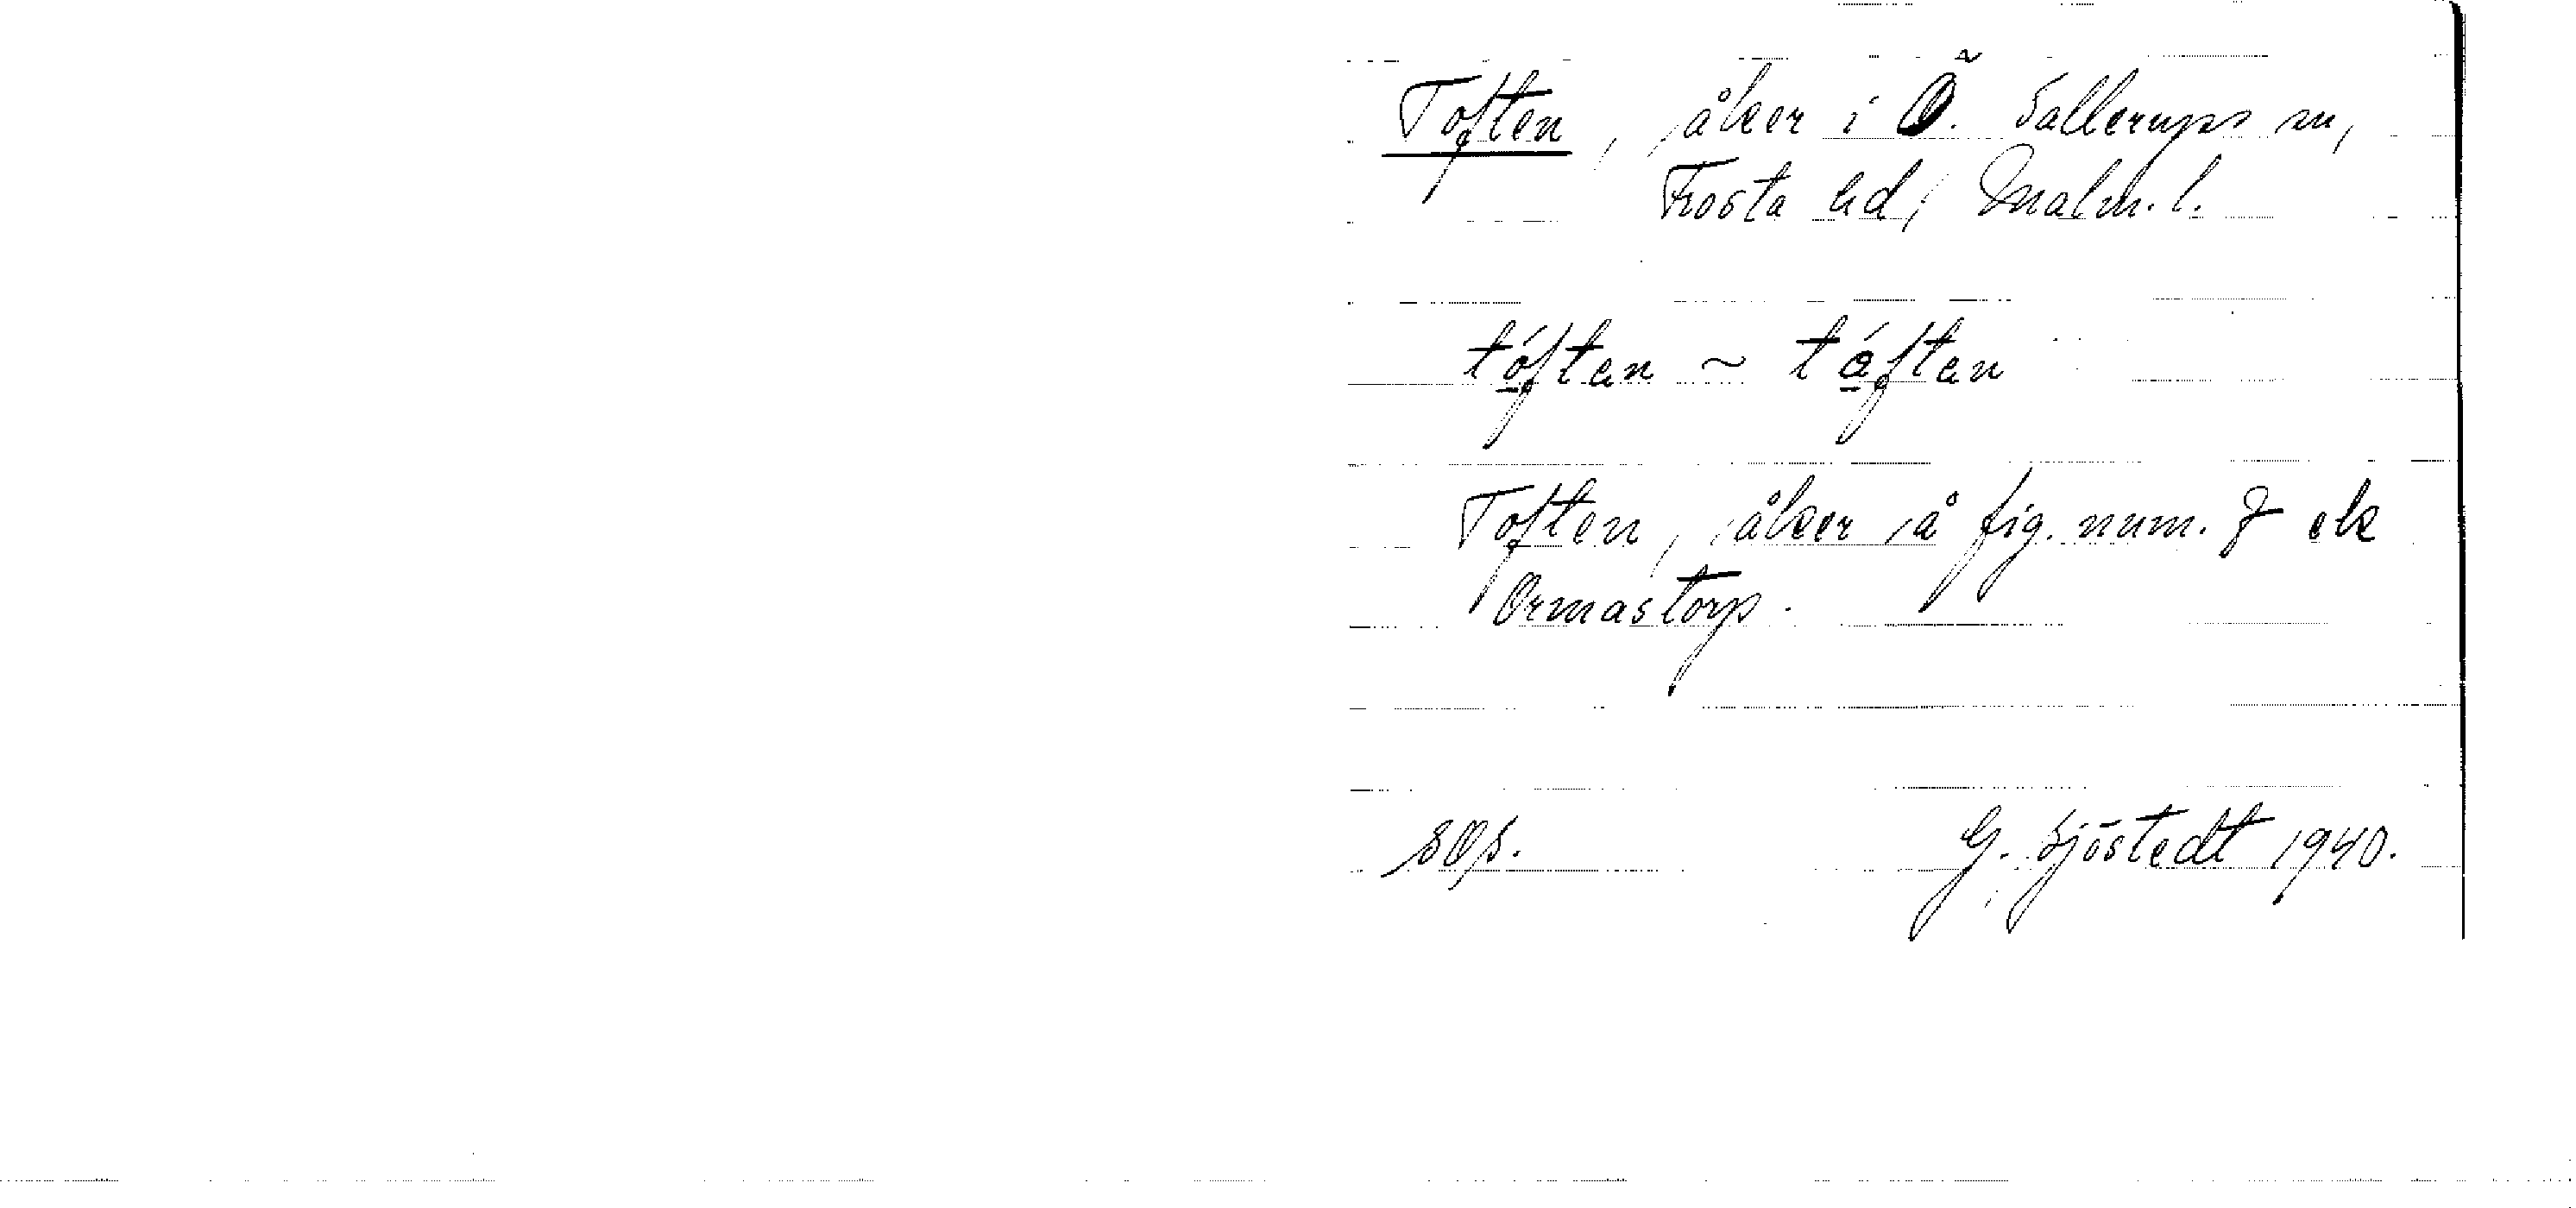 Toften, åker i Ö. Sallerups sn,
Frosta hd, Malm. l.
tóften ~ táften
Toften, åker å fig. num. 7 ek
Ormastorp.
SOS. G. Sjöstedt 1940.